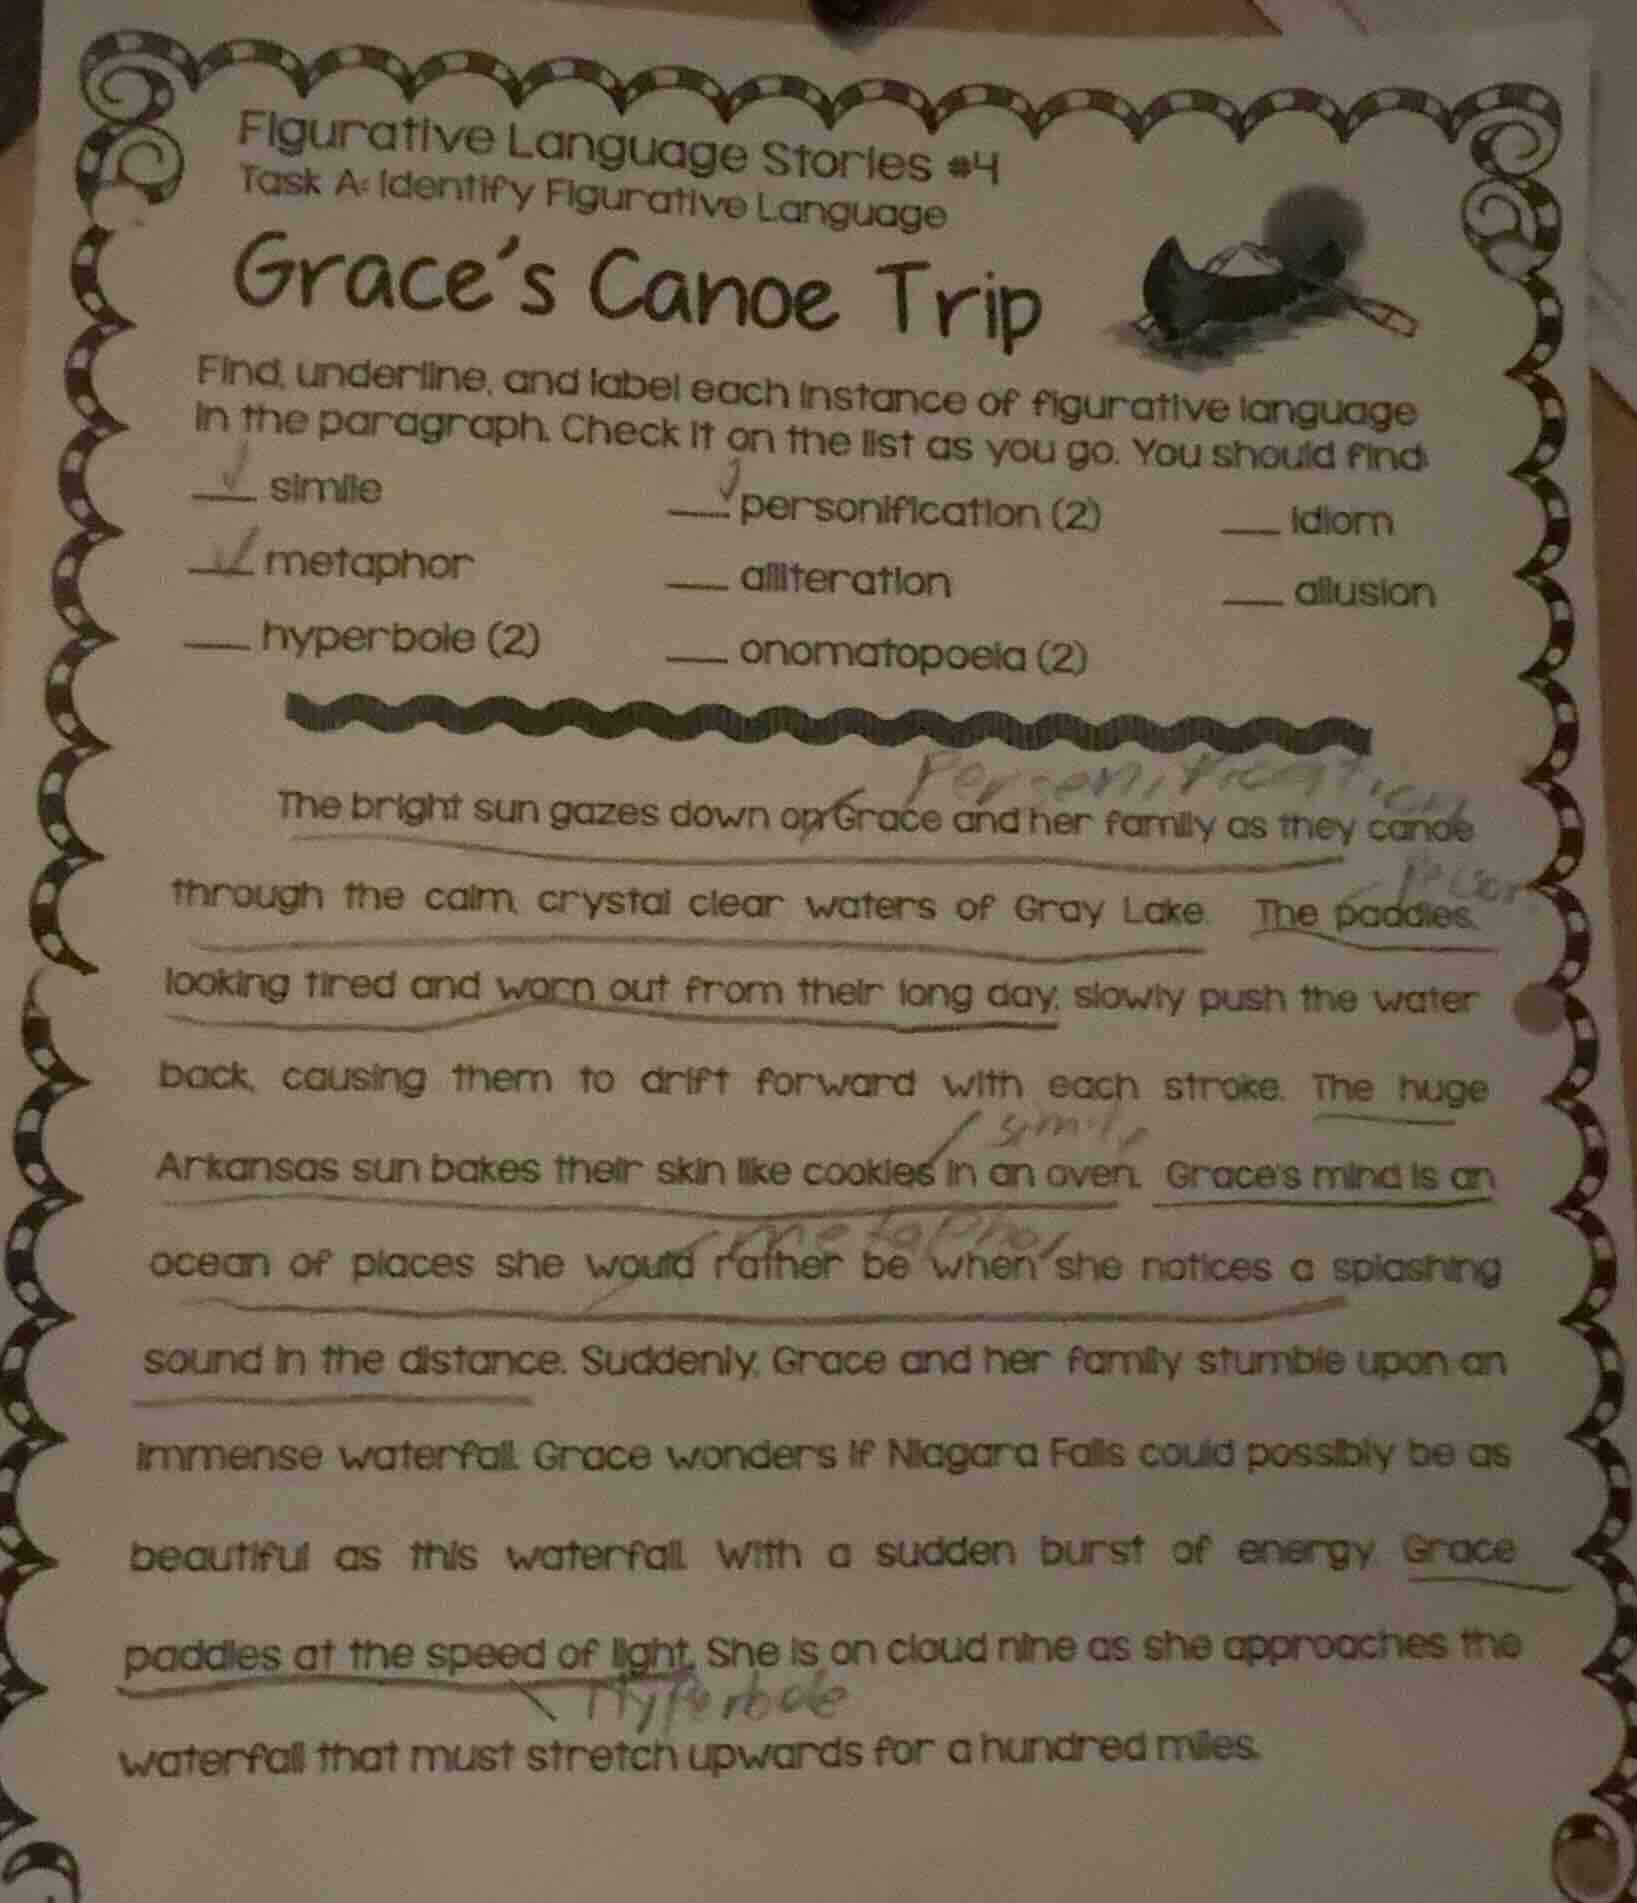 Figurative Language Stories #4
Task A: Identify Figurative Language
Grace's Canoe Trip
Find, underline, and label each instance of figurative language
in the paragraph. Check it on the list as you go. You should find:
simile
personification (2)
idiom
metaphor
alliteration
allusion
hyperbole (2)
onomatopoeia (2)
Personification
The bright sun gazes down on Grace and her family as they canoe
through the calm, crystal clear waters of Gray Lake. The paddles,
looking tired and worn out from their long day, slowly push the water
back, causing them to drift forward with each stroke. The huge
simile
Arkansas sun bakes their skin like cookies in an oven. Grace's mind is an
metaphor
ocean of places she would rather be when she notices a splashing
sound in the distance. Suddenly, Grace and her family stumble upon an
immense waterfall. Grace wonders if Niagara Falls could possibly be as
beautiful as this waterfall. With a sudden burst of energy, Grace
paddles at the speed of light. She is on cloud nine as she approaches the
Hyperbole
waterfall that must stretch upwards for a hundred miles.